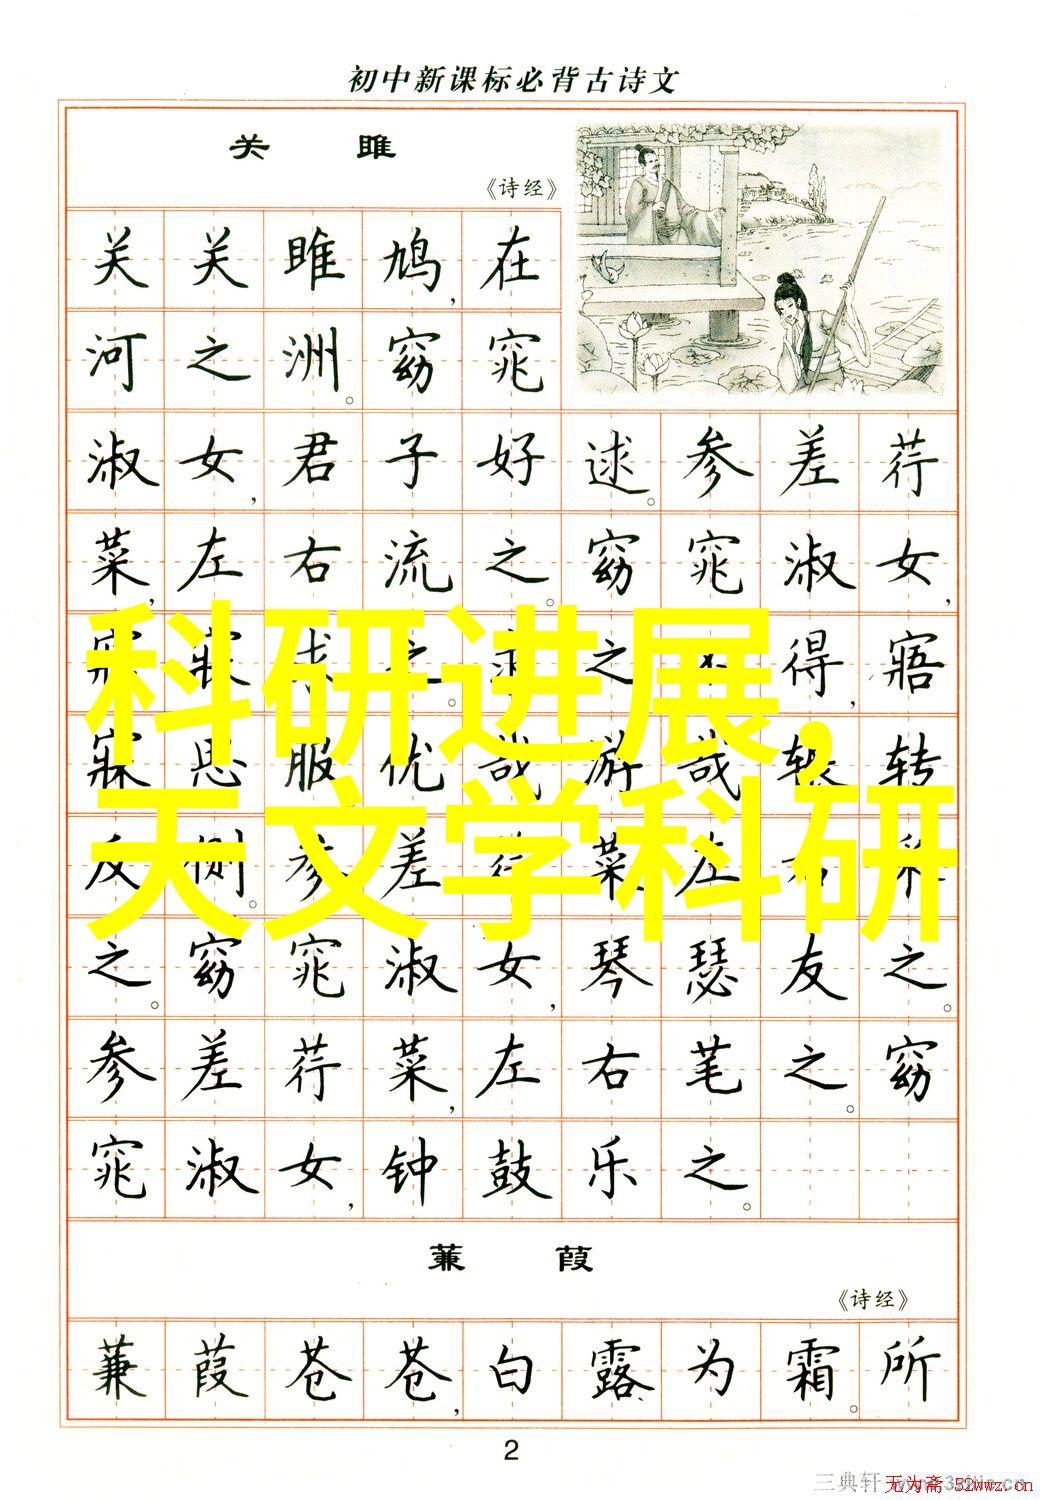 初中新课标必背古诗文
关 雎
《诗经》
关关雎鸠,在
河之洲。窈窕
淑女,君子好逑。参差荇
菜,左右流之。窈窕淑女,
寤寐求之。求之不得,寤
寐思服。优哉游哉,辗转
反侧。参差荇菜,左右采
之。窈窕淑女,琴瑟友之。
参差荇菜,左右芼之。窈
窕淑女,钟鼓乐之。
科研进展,
天文学科研
蒹 葭
《诗经》
蒹葭苍苍,白露为霜。所
2
三典轩
无为斋 52wwz.cn